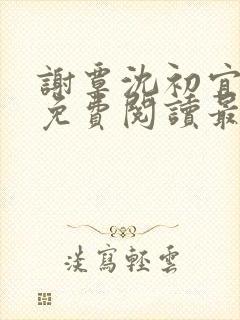 謝覃沈初宜
免費閱讀最
淡寫輕雲